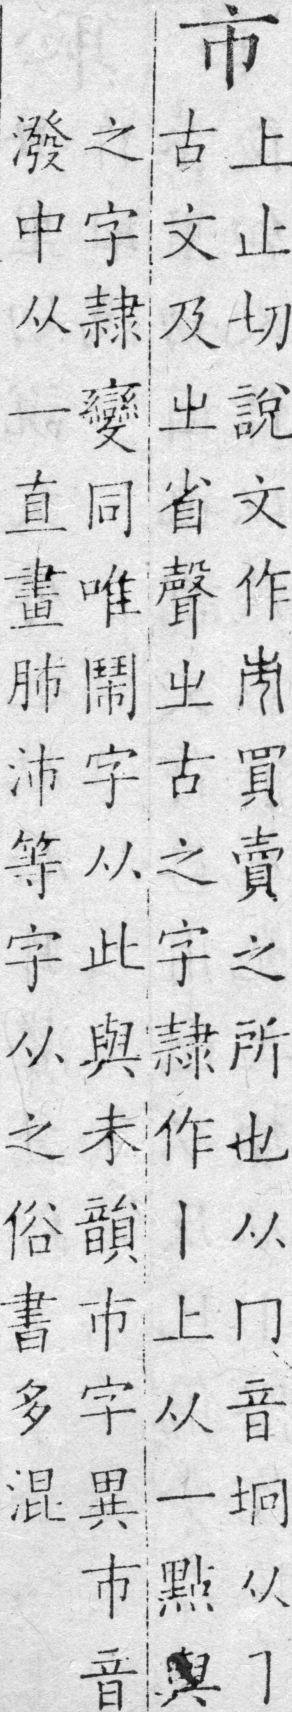 市
上止切說文作𢁒買賣之所也从冂音坰从㇆
古文及㞢省聲㞢古之字隷作丨上从一點與
之字隷變同唯鬧字从此與未韻巿字異巿音
潑中从一直畫肺沛等字从之俗書多混